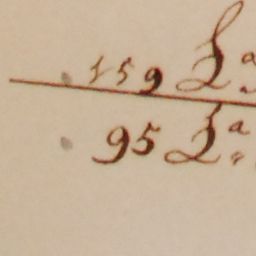 159 L.ª
95 L.ª